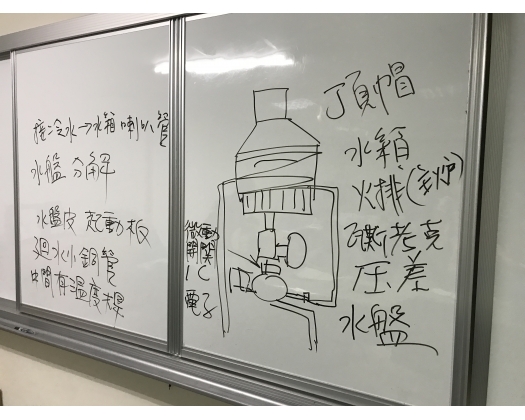 接冷水→水箱喇叭管
水盤分解
水盤皮 起動板
迴水小銅管
中間有溫度標
微動
開關
IC
電子
頂帽
水箱
火排(
考克
压差
水盤